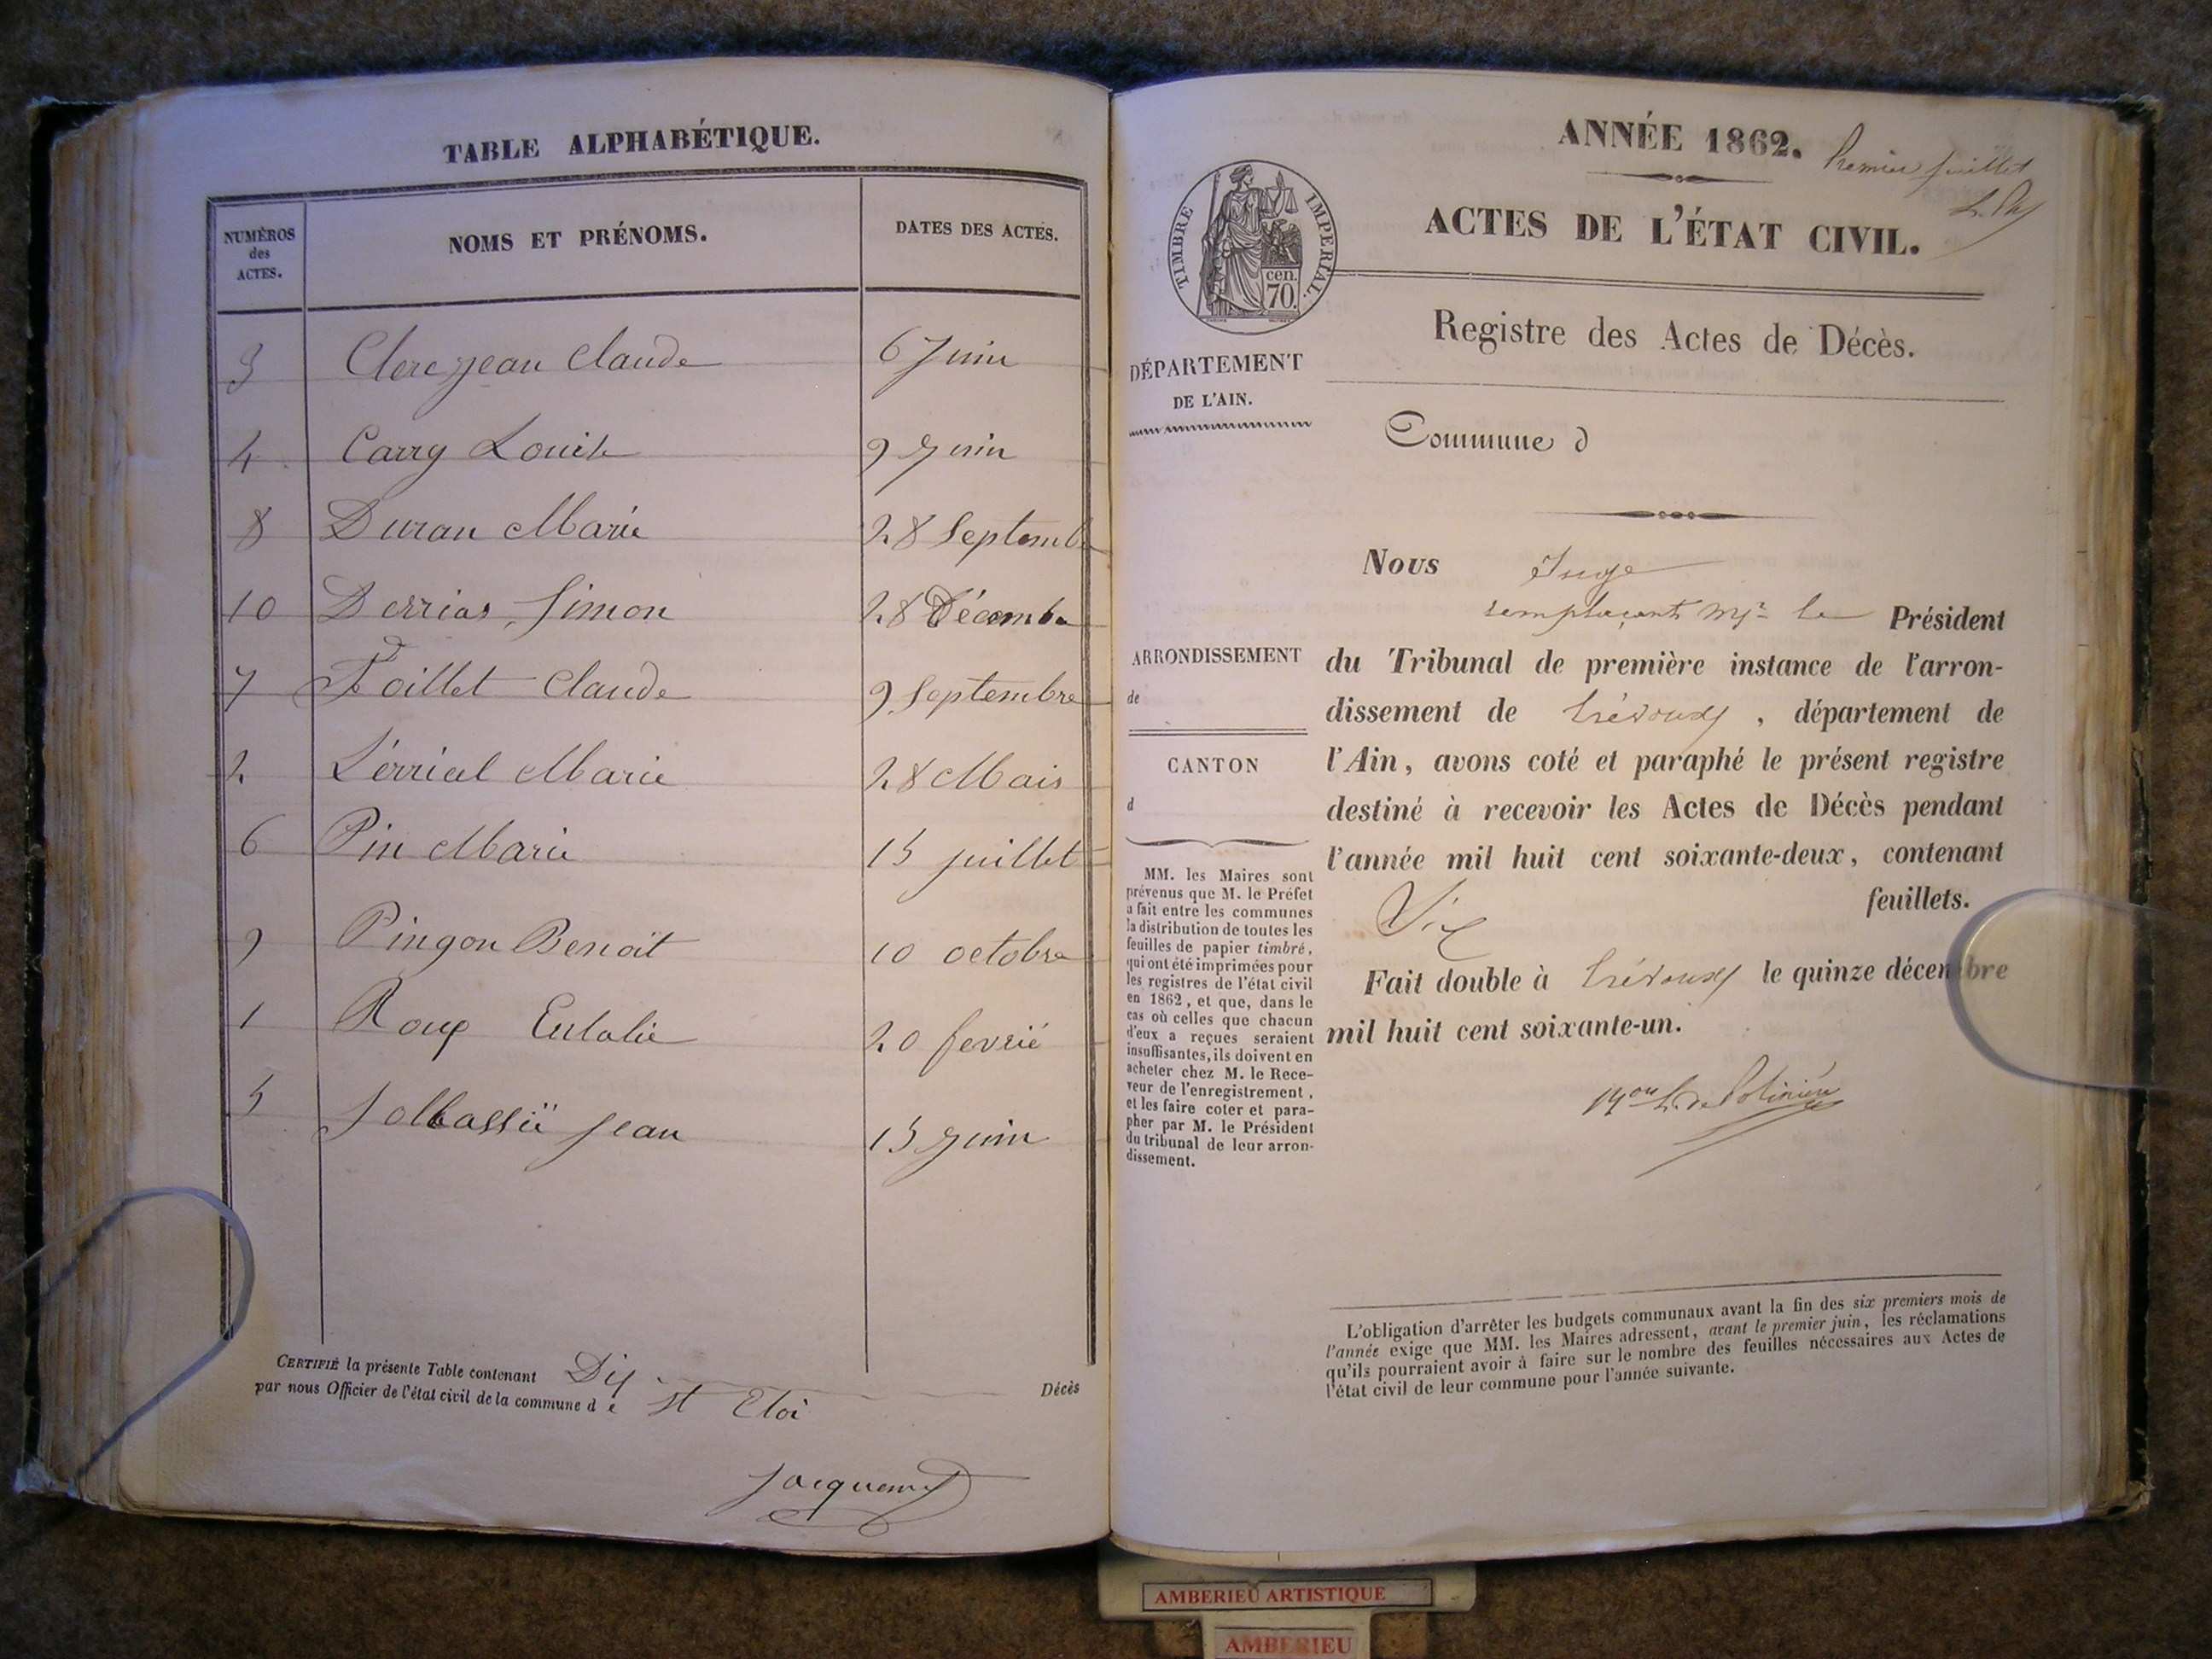 TABLE ALPHABÉTIQUE.
NUMÉROS
des
ACTES.
NOMS ET PRÉNOMS.
DATES DES ACTES.
3 Clerc Jean Claude 6 Juin
4 Carry Louise 9 Juin
8 Duran Marie 28 Septemb
10 Derrias Simon 28 Décembre
7 Foillet Claude 9 Septembre
2 Marie 28 Mais
6 Pin Marie 15 juillet
9 Pingon Benoit 10 octobre
1 Roux Eulalie 20 fevrié
5 Jean 15 Juin
CERTIFIÉ la présente Table contenant Dix Décès
par nous Officier de l'état civil de la commune de St Eloi
Jacquemet
ANNÉE 1862.
Premier feuillet
ACTES DE L'ÉTAT CIVIL.
TIMBRE IMPERIAL.
cen.
70.
Registre des Actes de Décès.
DÉPARTEMENT
DE L'AIN.
Commune d
Nous Juge
remplaçant Mr le Président
du Tribunal de première instance de l'arron-
dissement de Trévoux, département de
l'Ain, avons coté et paraphé le présent registre
destiné à recevoir les Actes de Décès pendant
l'année mil huit cent soixante-deux, contenant
Six feuillets.
Fait double à Trévoux le quinze décembre
mil huit cent soixante-un.
ARRONDISSEMENT
de
CANTON
d
MM. les Maires sont
prévenus que M. le Préfet
a fait entre les communes
la distribution de toutes les
feuilles de papier timbré,
qui ont été imprimées pour
les registres de l'état civil
en 1862, et que, dans le
cas où celles que chacun
d'eux a reçues seraient
insuffisantes, ils doivent en
acheter chez M. le Rece-
veur de l'enregistrement,
et les faire coter et para-
pher par M. le Président
du tribunal de leur arron-
dissement.
L'obligation d'arrêter les budgets communaux avant la fin des six premiers mois de
l'année exige que MM. les Maires adressent, avant le premier juin, les réclamations
qu'ils pourraient avoir à faire sur le nombre des feuilles nécessaires aux Actes de
l'état civil de leur commune pour l'année suivante.
AMBERIEU ARTISTIQUE
AMBERIEU